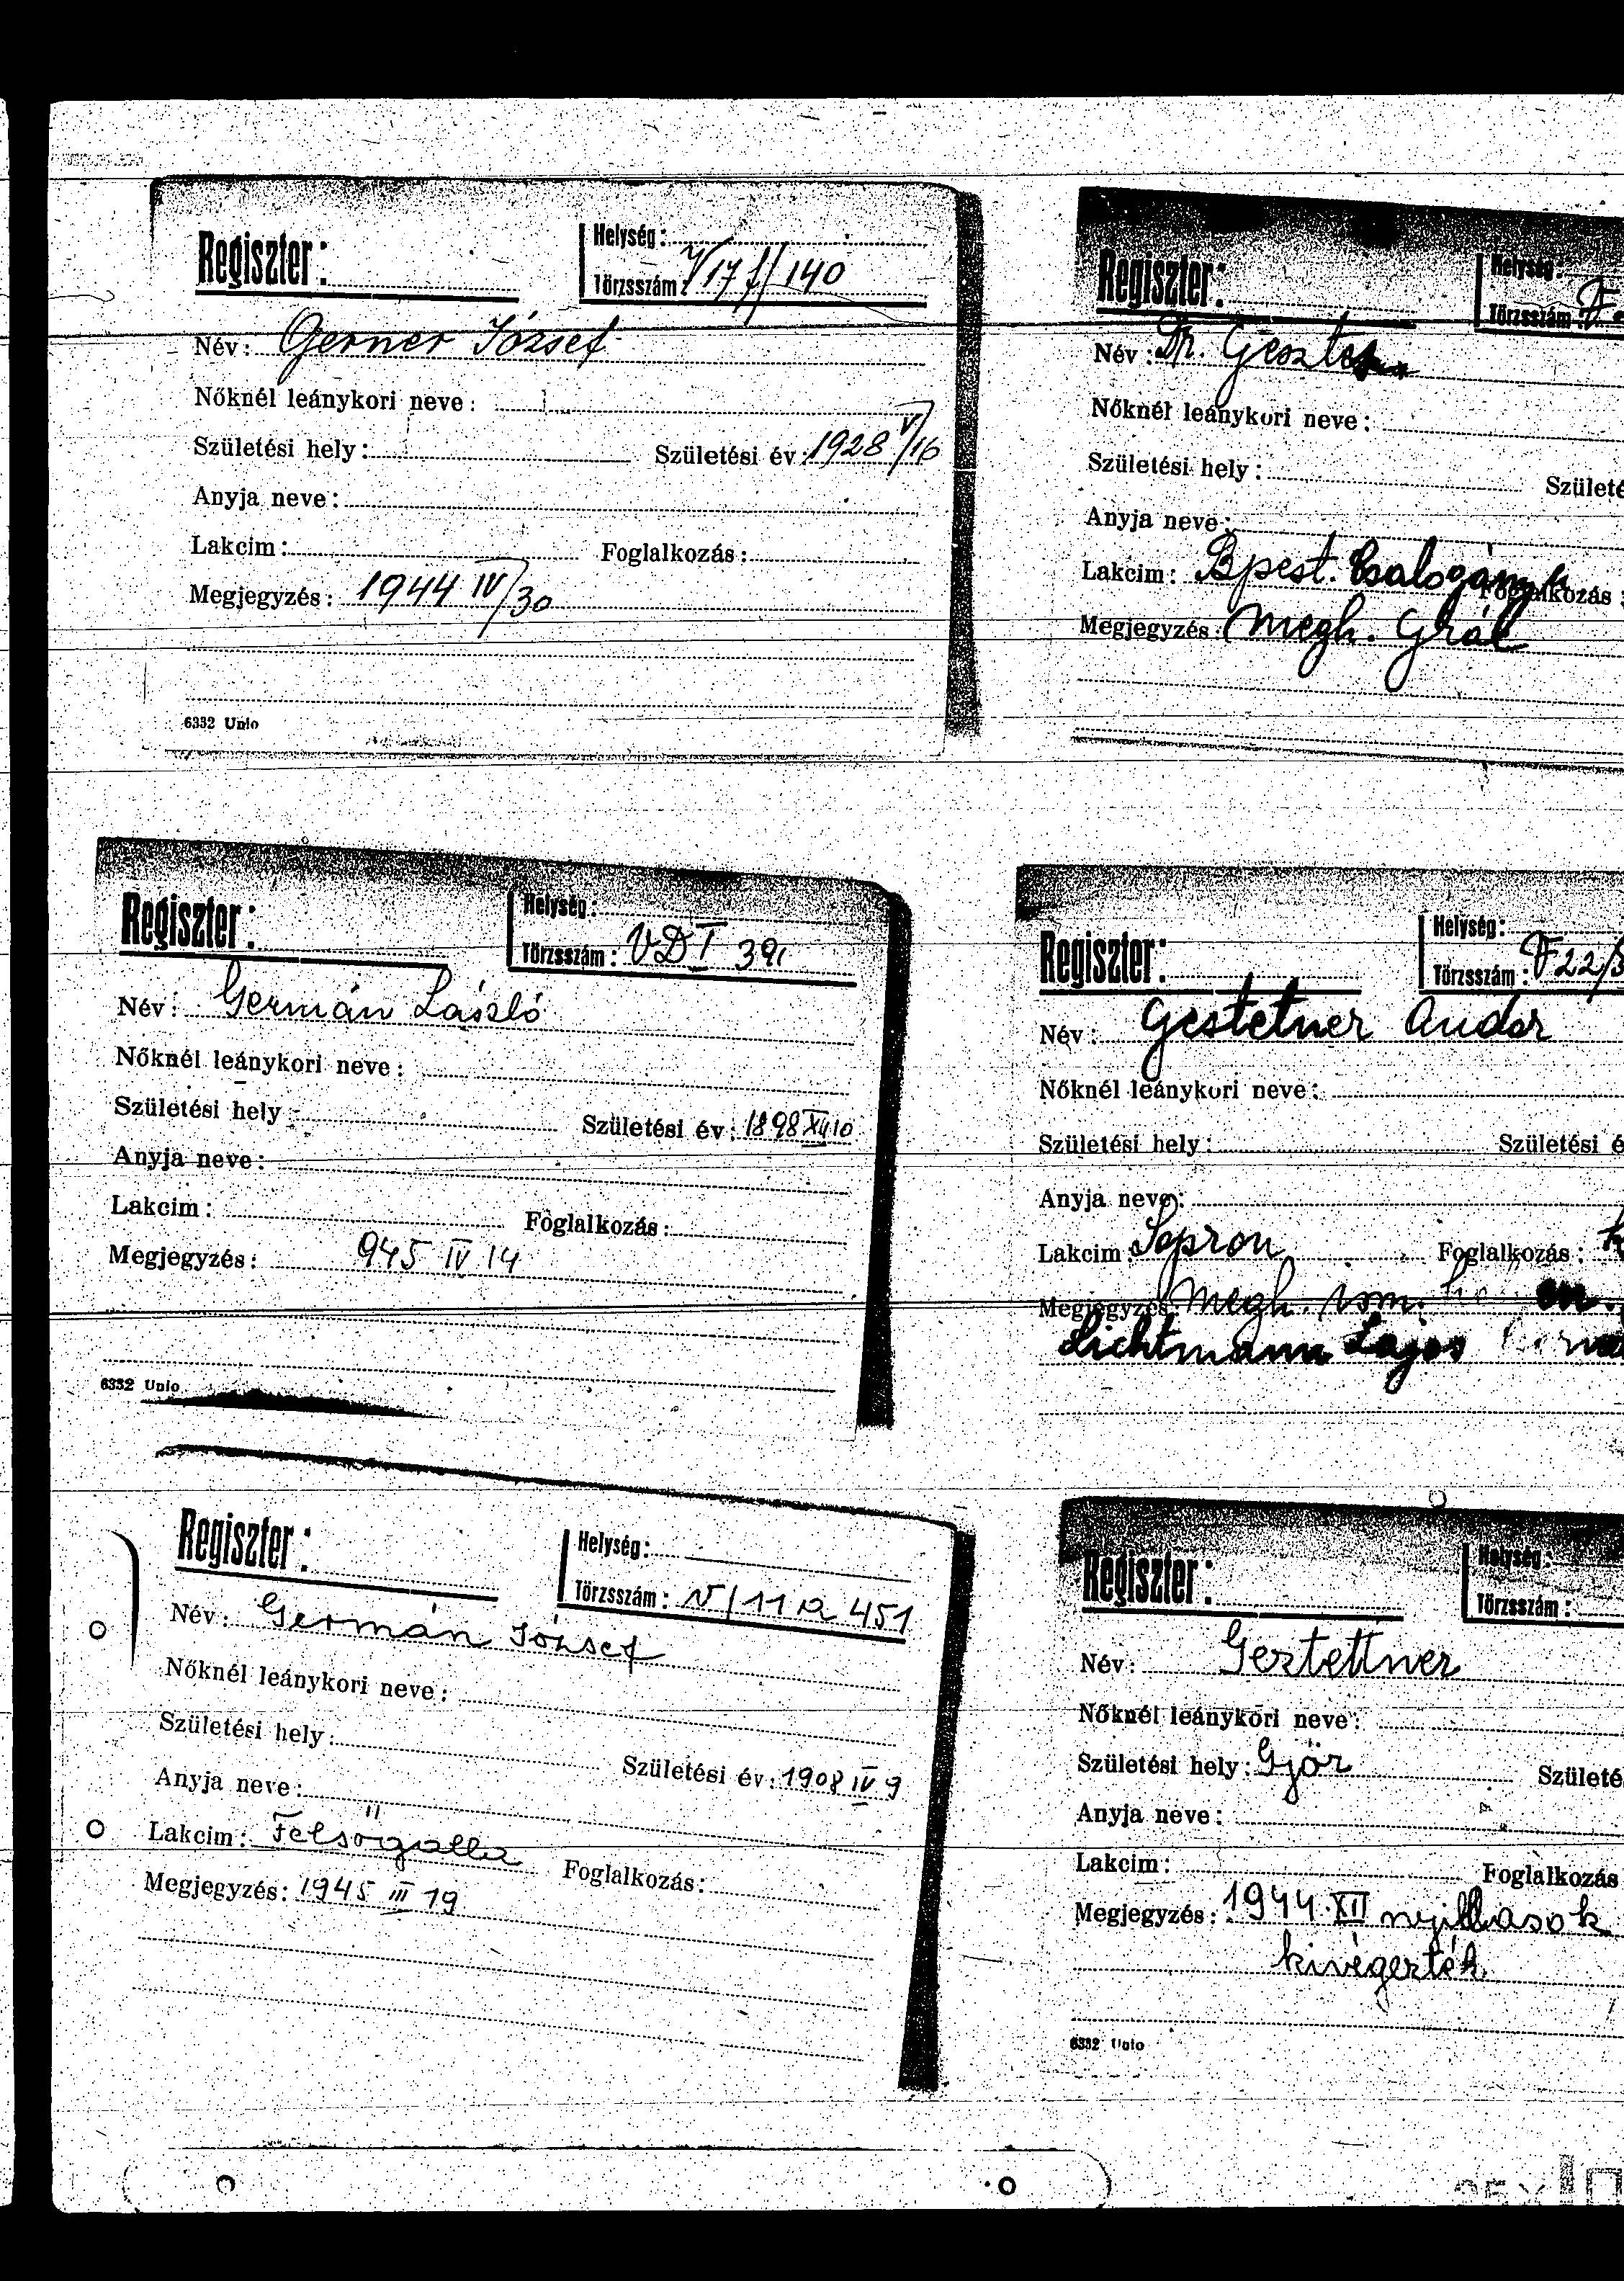 Regiszter:
Helység:
Törzsszám: V/17 f/140
Név: Gerner József
Nőknél leánykori neve:
Születési hely: Születési év: 1928 V/16
Anyja neve:
Lakcim: Foglalkozás:
Megjegyzés: 1944 IV/30
6332 Unio
Regiszter:
Helység:
Törzsszám:
Név: Dr.
Nőknél leánykori neve:
Születési hely: Születé
Anyja neve:
Lakcim: Bpest. Csalogány Foglalkozás:
Megjegyzés: megh. Grál
Regiszter:
Helység:
Törzsszám: VDT 391
Név: Germán László
Nőknél leánykori neve:
Születési hely Születési év: 1898 XII 10
Anyja neve:
Lakcim: Foglalkozás:
Megjegyzés: 945 IV 14
6332 Unio
Regiszter:
Helység:
Törzsszám: F22/
Név: Gestetner Andor
Nőknél leánykori neve:
Születési hely: Születési é
Anyja neve:
Lakcim: Sopron Foglalkozás:
Megjegyzés: megh. ism.
Lichtmann Lajos
Regiszter:
Helység:
Törzsszám: V/11 a 451
Név: Germán József
Nőknél leánykori neve:
Születési hely: Születési év: 1908 IV 9
Anyja neve:
Lakcim: Felsőgalla Foglalkozás:
Megjegyzés: 1945 III 19
Regiszter:
Helység:
Törzsszám:
Név: Gestettner
Nőknél leánykori neve:
Születési hely: Győr Születé
Anyja neve:
Lakcim: Foglalkozás
Megjegyzés: 1944. XII nyillasok
kivégezték
6332 Unio